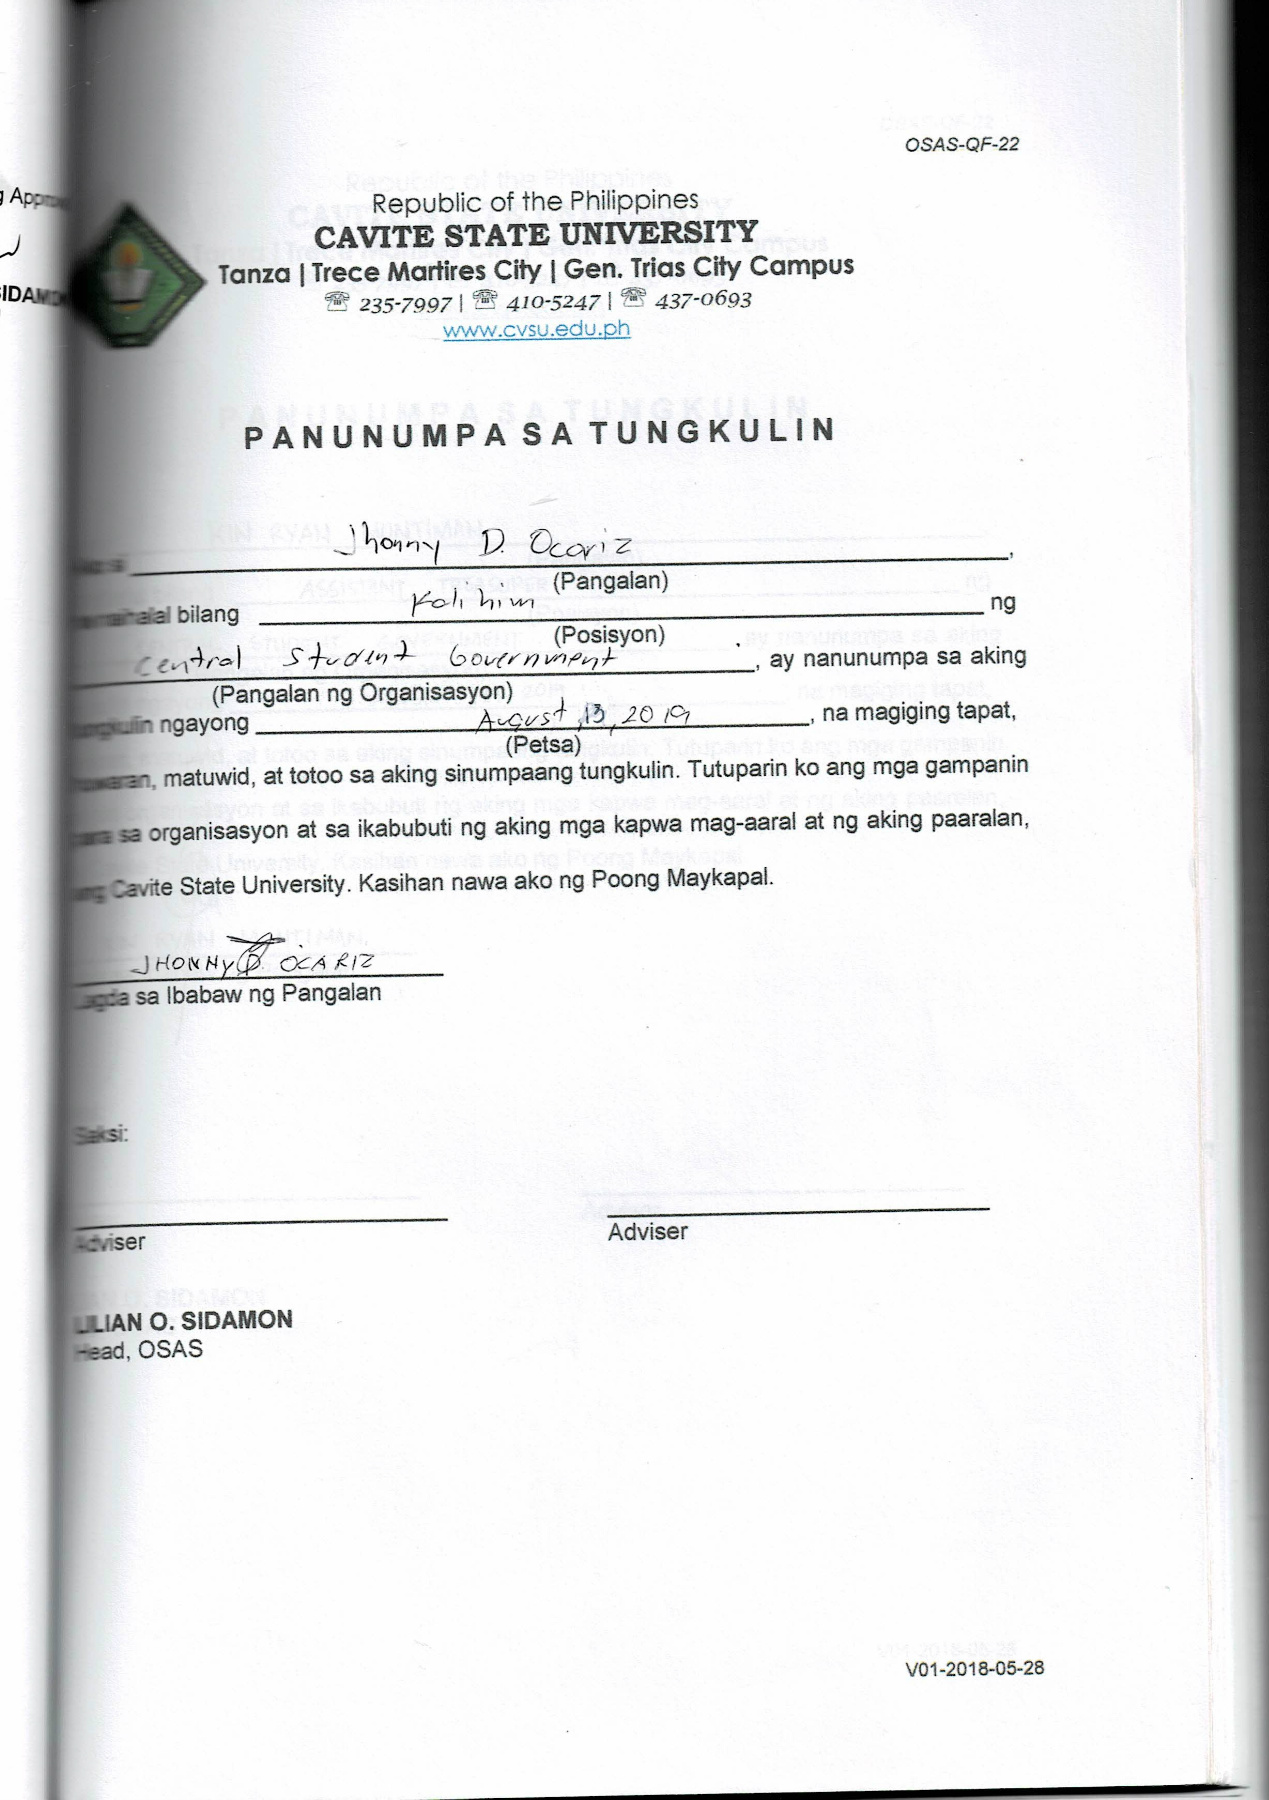 OSAS-QF-22
Republic of the Philippines
CAVITE STATE UNIVERSITY
Tanza | Trece Martires City | Gen. Trias City Campus
☏ 235-7997 | ☏ 410-5247 | ☏ 437-0693
www.cvsu.edu.ph
PANUNUMPA SA TUNGKULIN
Jhonny D. Ocariz,
(Pangalan)
bilang Kalihim ng
(Posisyon)
Central Student Government, ay nanunumpa sa aking
(Pangalan ng Organisasyon)
tungkulin ngayong August 13, 2019, na magiging tapat,
(Petsa)
matuwid, at totoo sa aking sinumpaang tungkulin. Tutuparin ko ang mga gampanin
para sa organisasyon at sa ikabubuti ng aking mga kapwa mag-aaral at ng aking paaralan,
ang Cavite State University. Kasihan nawa ako ng Poong Maykapal.
JHONNY D. OCARIZ
Lagda sa Ibabaw ng Pangalan
Saksi:
Adviser Adviser
LILIAN O. SIDAMON
Head, OSAS
V01-2018-05-28